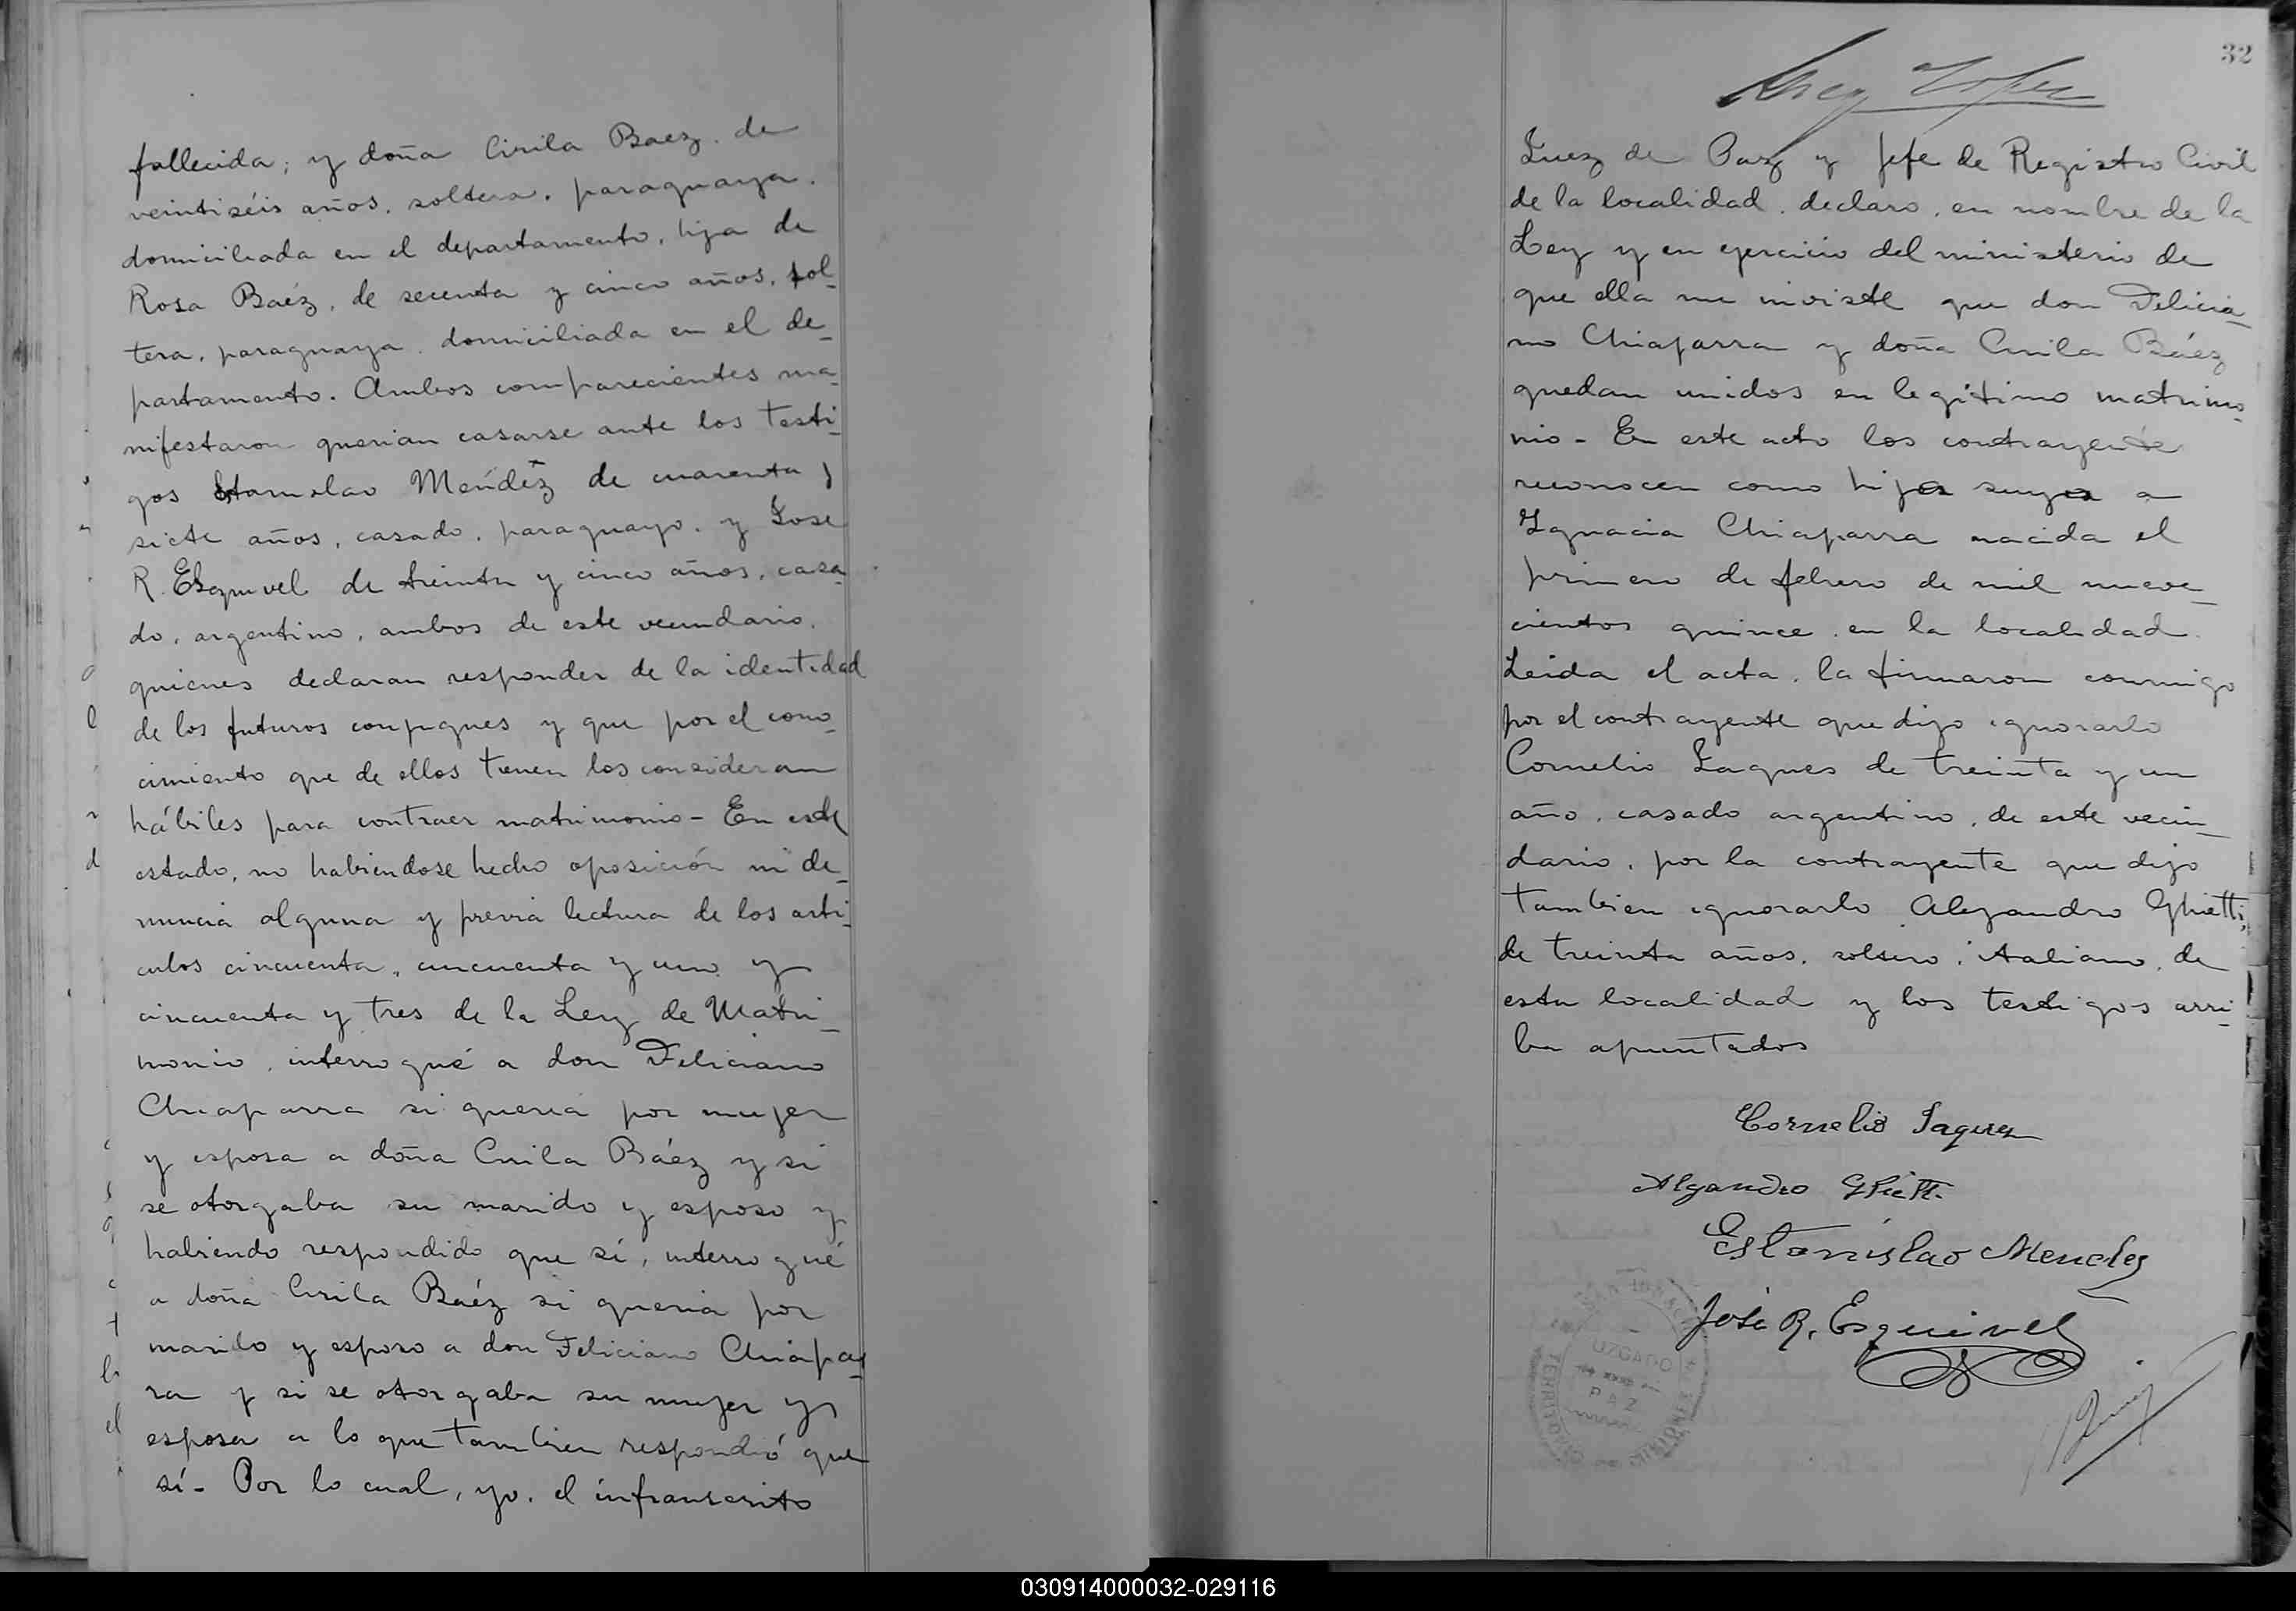 fallecida; y doña Cirila Baez. de
veintiséis años, soltera, paraguaya.
domiciliada en el departamento, hija de
Rosa Baéz, de secenta y cinco años, sol-
tera, paraguaya. domiciliada en el de-
partamento. Ambos comparecientes ma-
nifestaron querian casarse ante los testi-
gos Estanislao Meńdez de cuarenta y
siete años, casado, paraguayo. y Jose
R. Esquivel de treinta y cinco años, casa-
do, argentino, ambos de este vecindario.
quienes declaran responder de la identidad
de los futuros conyuges y que por el cono-
cimiento que de ellos tienen los consideran
hábiles para contraer matrimonio - En este
estado, no habiendose hecho oposición ni de-
nuncia alguna y previa lectura de los arti-
culos cincuenta, cincuenta y uno y
cincuenta y tres de la Ley de Matri-
monio, interrogué a don Feliciano
Chiaparra si queria por mujer
y esposa a doña Cirila Báez y si
se otorgaba su marido y esposo y
habiendo respondido que sí, interrogué
a doña Cirila Báez si queria por
marido y esposo a don Feliciano Chiapar-
ra y si se otorgaba su mujer y
esposa a lo que tambien respondió que
sí - Por lo cual, yo, el infranscrito
32
Juez de Paz y Jefe de Registro Civil
de la localidad, declaro, en nombre de la
Ley y en ejercicio del ministerio de
que ella me inviste que don Felicia-
no Chiaparra y doña Cirila Báez
quedan unidos en legitimo matrimo-
nio - En este acto los contrayente
reconocen como hija suya a
Ignacia Chiaparra nacida el
primero de febrero de mil nueve-
cientos quince en la localidad.
Leida el acta, la firmaron conmigo
por el contrayente que dijo ignorarlo
Cornelio Jaques de treinta y un
año, casado argentino, de este vecin-
dario, por la contrayente que dijo
tambien ignorarlo Alejandro Ghietti,
de treinta años, soltero, italiano, de
esta localidad y los testigos arri-
ba apuntados
Cornelio Jaques
Alejandro Ghietti
Estanislao Mendez
José R. Esquivel
SAN IGNACIO
JUZGADO
PAZ
TERRITORIO DE MISIONES
030914000032-029116